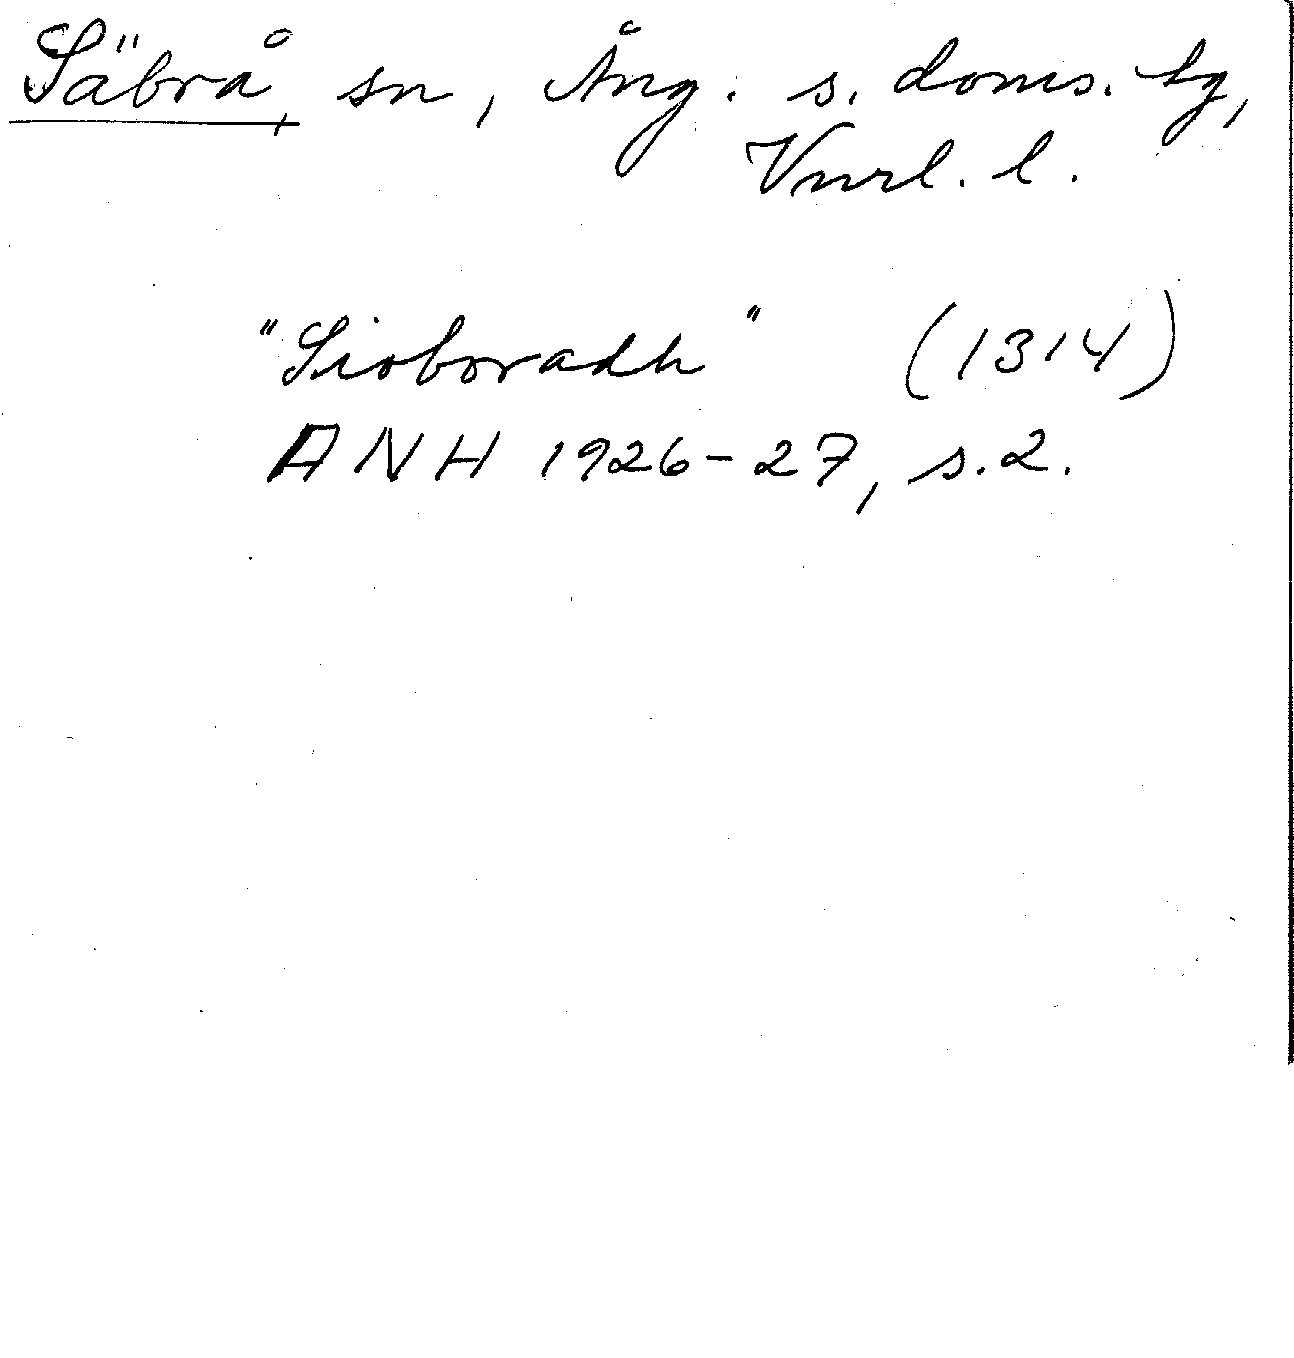 Säbrå, sn, Ång. s. doms. tg,
Vnrl. l.
"Sioboradh" (1314)
ANH 1926-27, s. 2.